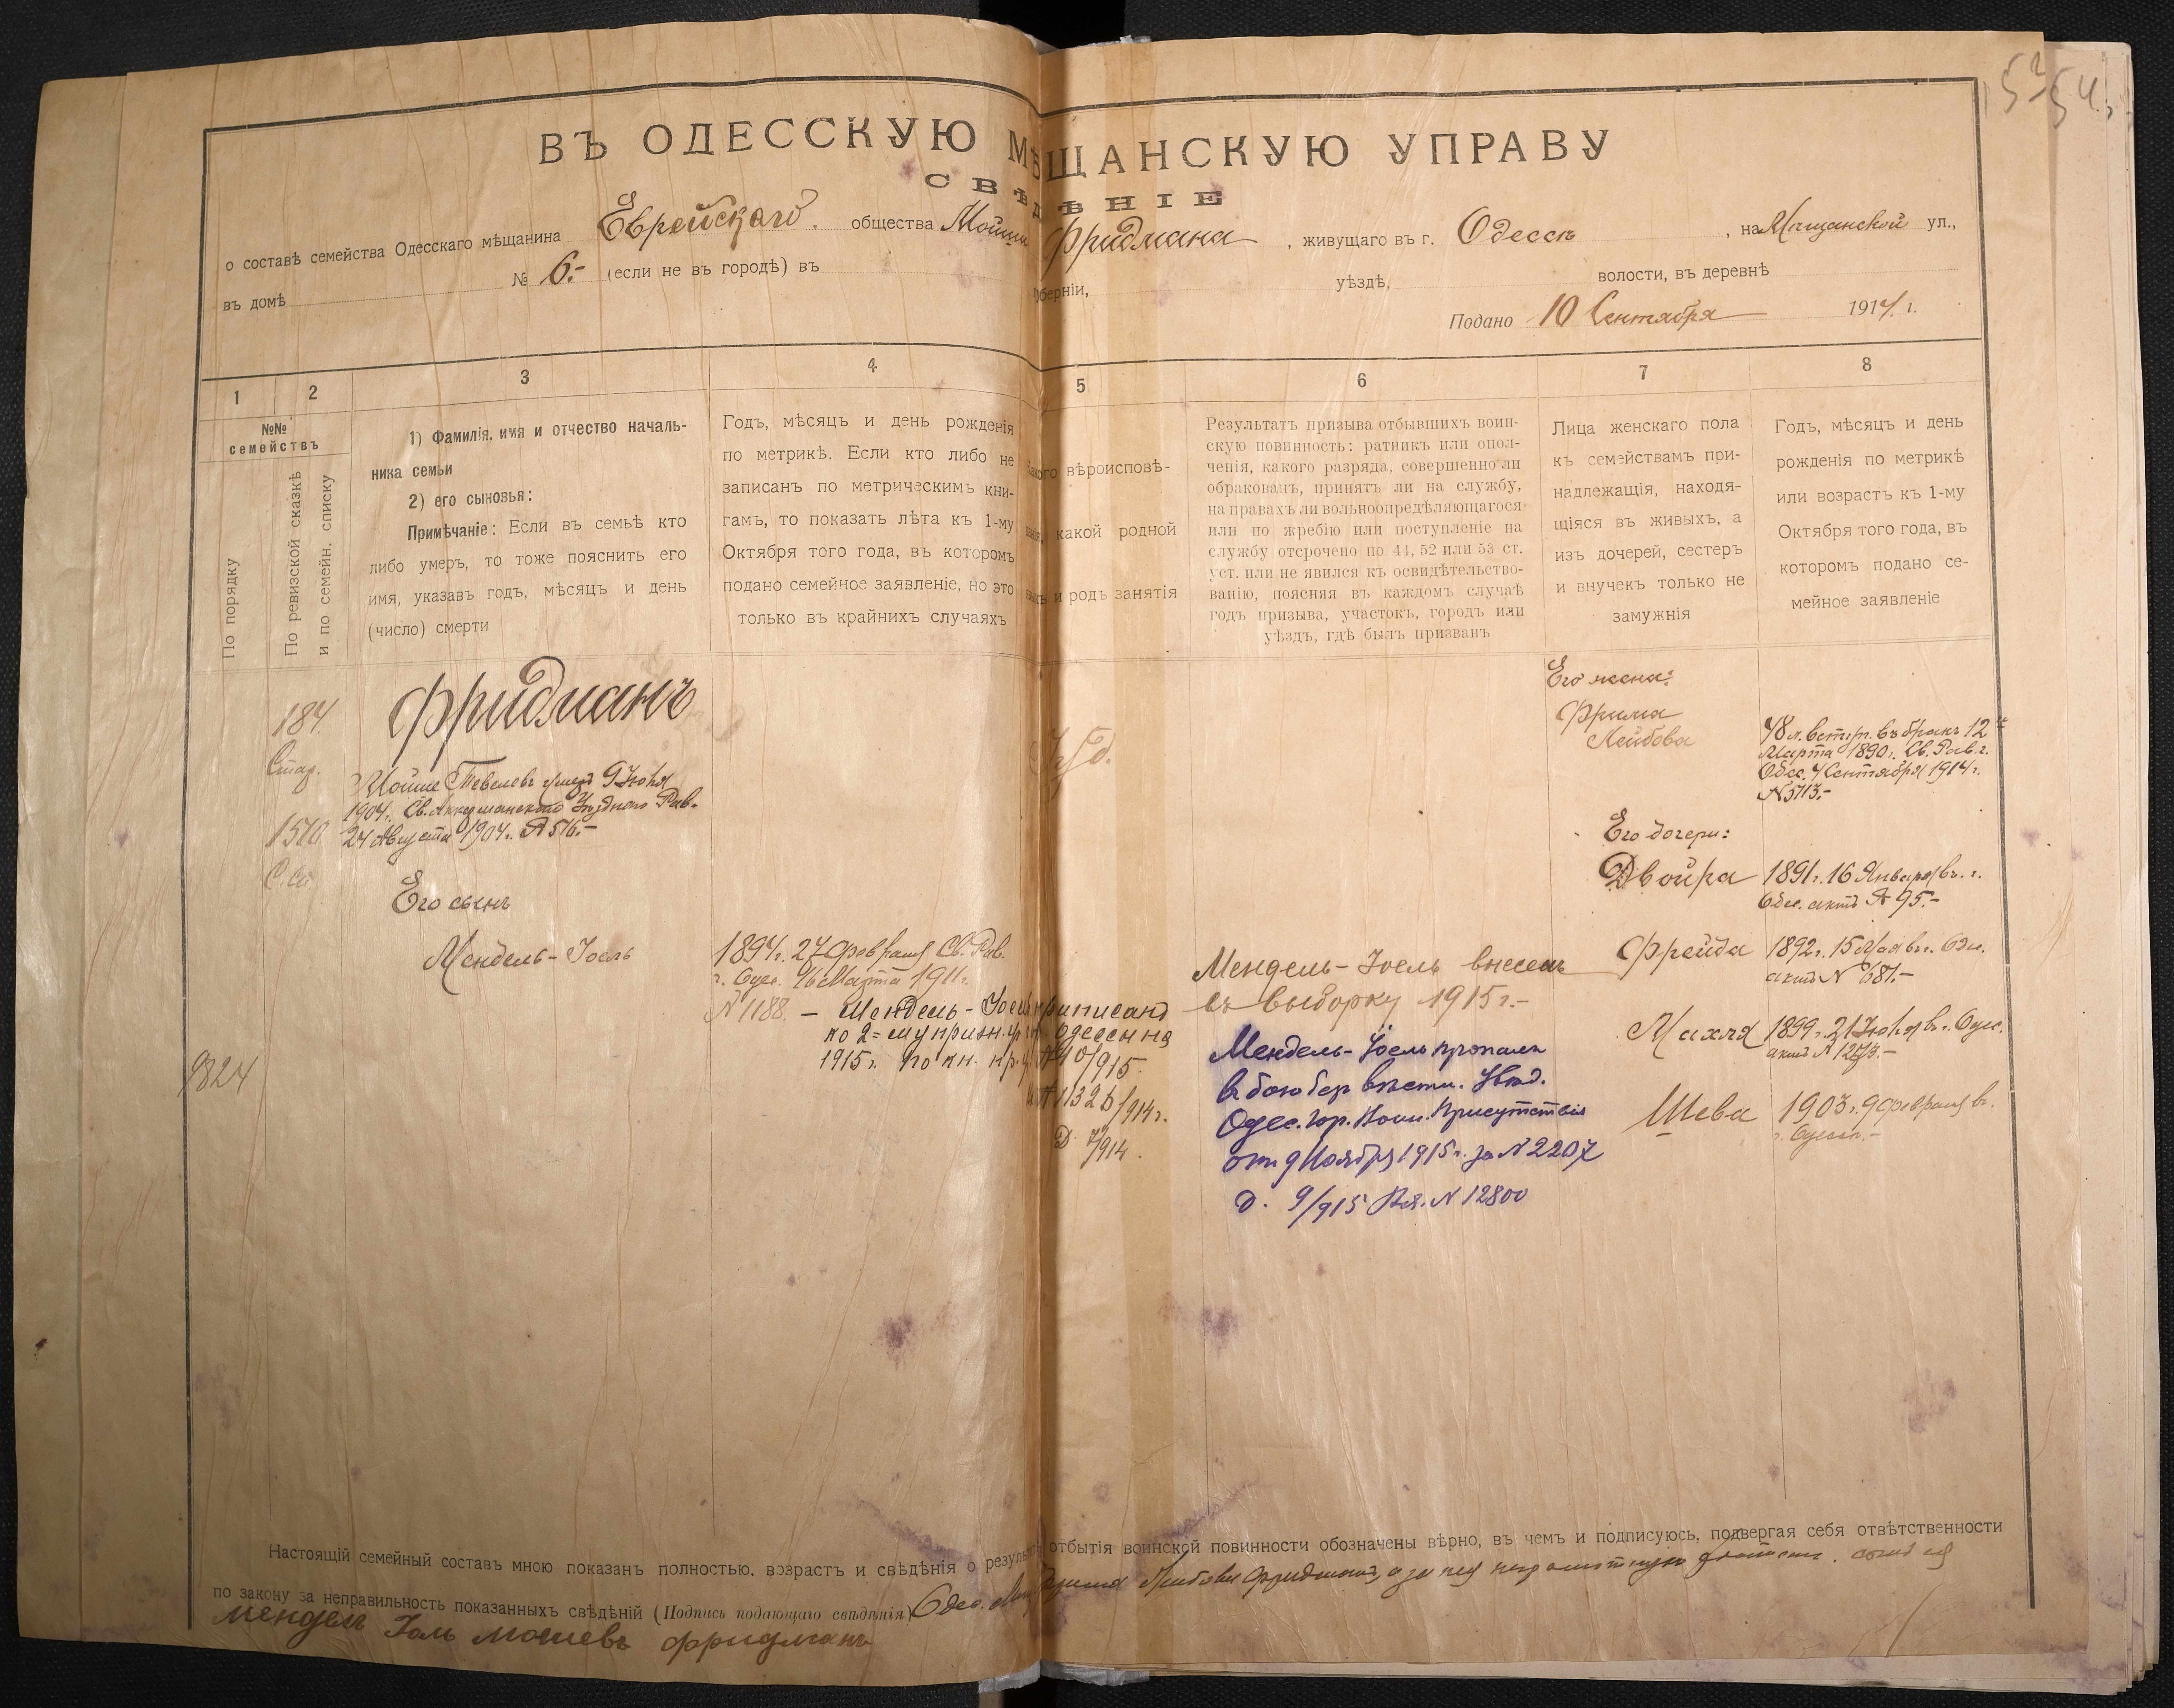 52 54
ВЪ ОДЕССКУЮ МѢЩАНСКУЮ УПРАВУ
СВѢДѢНІЕ
о составѣ семейства Одесскаго мѣщанина Еврейскаго общества Мойши Фридмана, живущаго въ г. Одессѣ, на Мѣщанской ул.,
въ домѣ № 6.- (если не въ городѣ) въ губерніи, уѣздѣ, волости, въ деревнѣ
Подано 10 Сентября 1914 г.
1 2 3 4 5 6 7 8
№№ семействъ
По порядку
По ревизской сказкѣ
и по семейн. списку
1) Фамилія, имя и отчество началь-
ника семьи
2) его сыновья:
Примѣчаніе: Если въ семьѣ кто
либо умеръ, то тоже пояснить его
имя, указавъ годъ, мѣсяцъ и день
(число) смерти
Годъ, мѣсяцъ и день рожденія
по метрикѣ. Если кто либо не
записанъ по метрическимъ кни-
гамъ, то показать лѣта къ 1-му
Октября того года, въ которомъ
подано семейное заявленіе, но это
только въ крайнихъ случаяхъ
вѣроисповѣ-
какой родной
и родъ занятія
Результатъ призыва отбывшихъ воин-
скую повинность: ратникъ или опол-
ченія, какого разряда, совершенно ли
обракованъ, принятъ ли на службу,
на правахъ ли вольноопредѣляющагося
или по жребію или поступленіе на
службу отсрочено по 44, 52 или 53 ст.
уст. или не явился къ освидѣтельство-
ванію, поясняя въ каждомъ случаѣ
годъ призыва, участокъ, городъ или
уѣздъ, гдѣ былъ призванъ
Лица женскаго пола
къ семействамъ при-
надлежащія, находя-
щіяся въ живыхъ, а
изъ дочерей, сестеръ
и внучекъ только не
замужнія
Годъ, мѣсяцъ и день
рожденія по метрикѣ
или возрастъ къ 1-му
Октября того года, въ
которомъ подано се-
мейное заявленіе
184.
Стар.
1510
9824
Фридманъ
Мойше Тевелевъ умеръ 9 Іюля
1904 г. Св. Аккерманскаго Уѣзднаго Рав.
24 Августа 1904 г. № 516.-
Его сынъ
Мендель-Іоель
1894 г. 27 Февраля Св. Рав.
г. Одес. 16 Марта 1911 г.
№ 1188. — Мендель-Іоель приписанъ
ко 2=му призн. уч. г. Одессы на
1915 г. по кн. 40/915.
1132b/914 г.
Д. 7/914.
Іуд.
Мендель-Іоель внесенъ
въ выборку 1915 г.-
Мендель-Іоель пропалъ
въ бою безъ вѣсти. Увѣд.
Одес. гор. Воин. Присутствія
отъ 9 Ноября 1915 г. за № 2207
Д. 9/915 Вх. № 12800
Его жена:
Фрима
Лейбова
48 л. вступ. въ бракъ 12
Марта 1890 г. Св. Рав. г.
Одес. 4 Сентября 1914 г.
№ 5713.-
Его дочери:
Двойра 1891 г. 16 Января въ г.
Одес. актъ № 95.-
Фрейда 1892 г. 15 Мая въ г. Одес.
актъ № 681.-
Махля 1899 г. 21 Іюля въ г. Одес.
актъ № 1273.-
Шева 1903 г. 9 Февраля въ
г. Одессѣ.-
Настоящій семейный составъ мною показанъ полностью, возрастъ и свѣдѣнія о результатѣ отбытія воинской повинности обозначены вѣрно, въ чемъ и подписуюсь, подвергая себя отвѣтственности
по закону за неправильность показанныхъ свѣдѣній (Подпись подающаго свѣдѣнія) Одес. Мѣщ. Фрима Лейбова Фридманъ, а за нея неграмотную росписался сынъ ея
Мендель Іоль Мошевъ Фридманъ